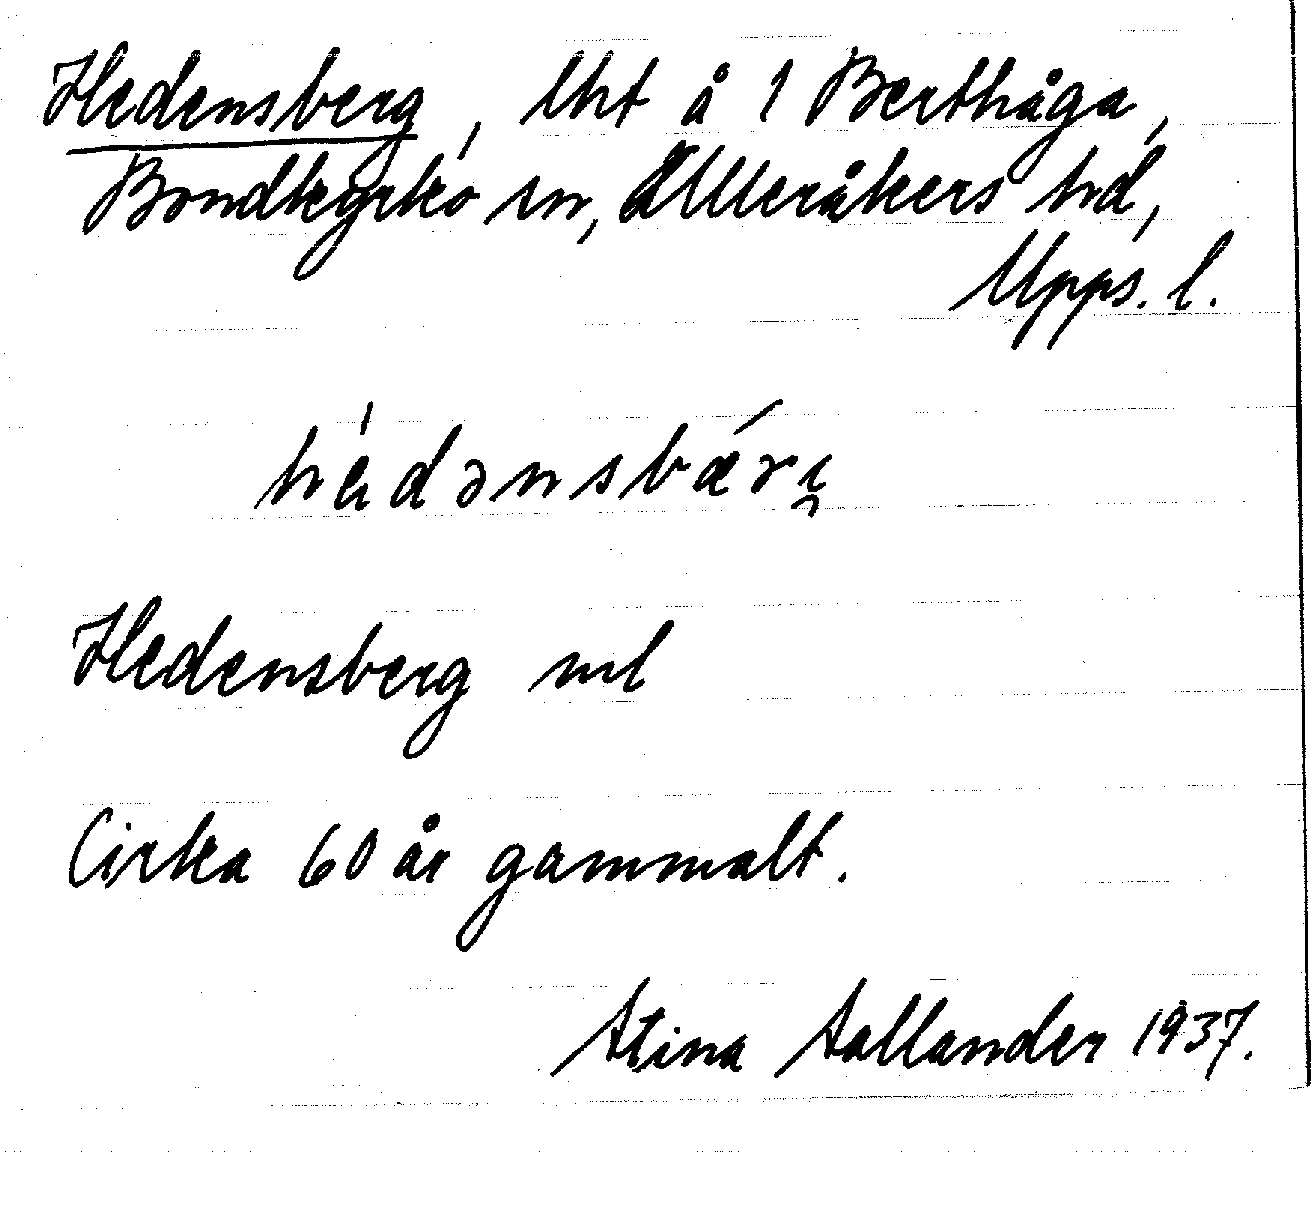 Hedensberg, lht å 1 Berthåga,
Bondkyrko sn, Ulleråkers hd,
Upps. l.
hédənsbǽrι̯
Hedensberg ml
Cirka 60 år gammalt.
Stina Sallander 1937.